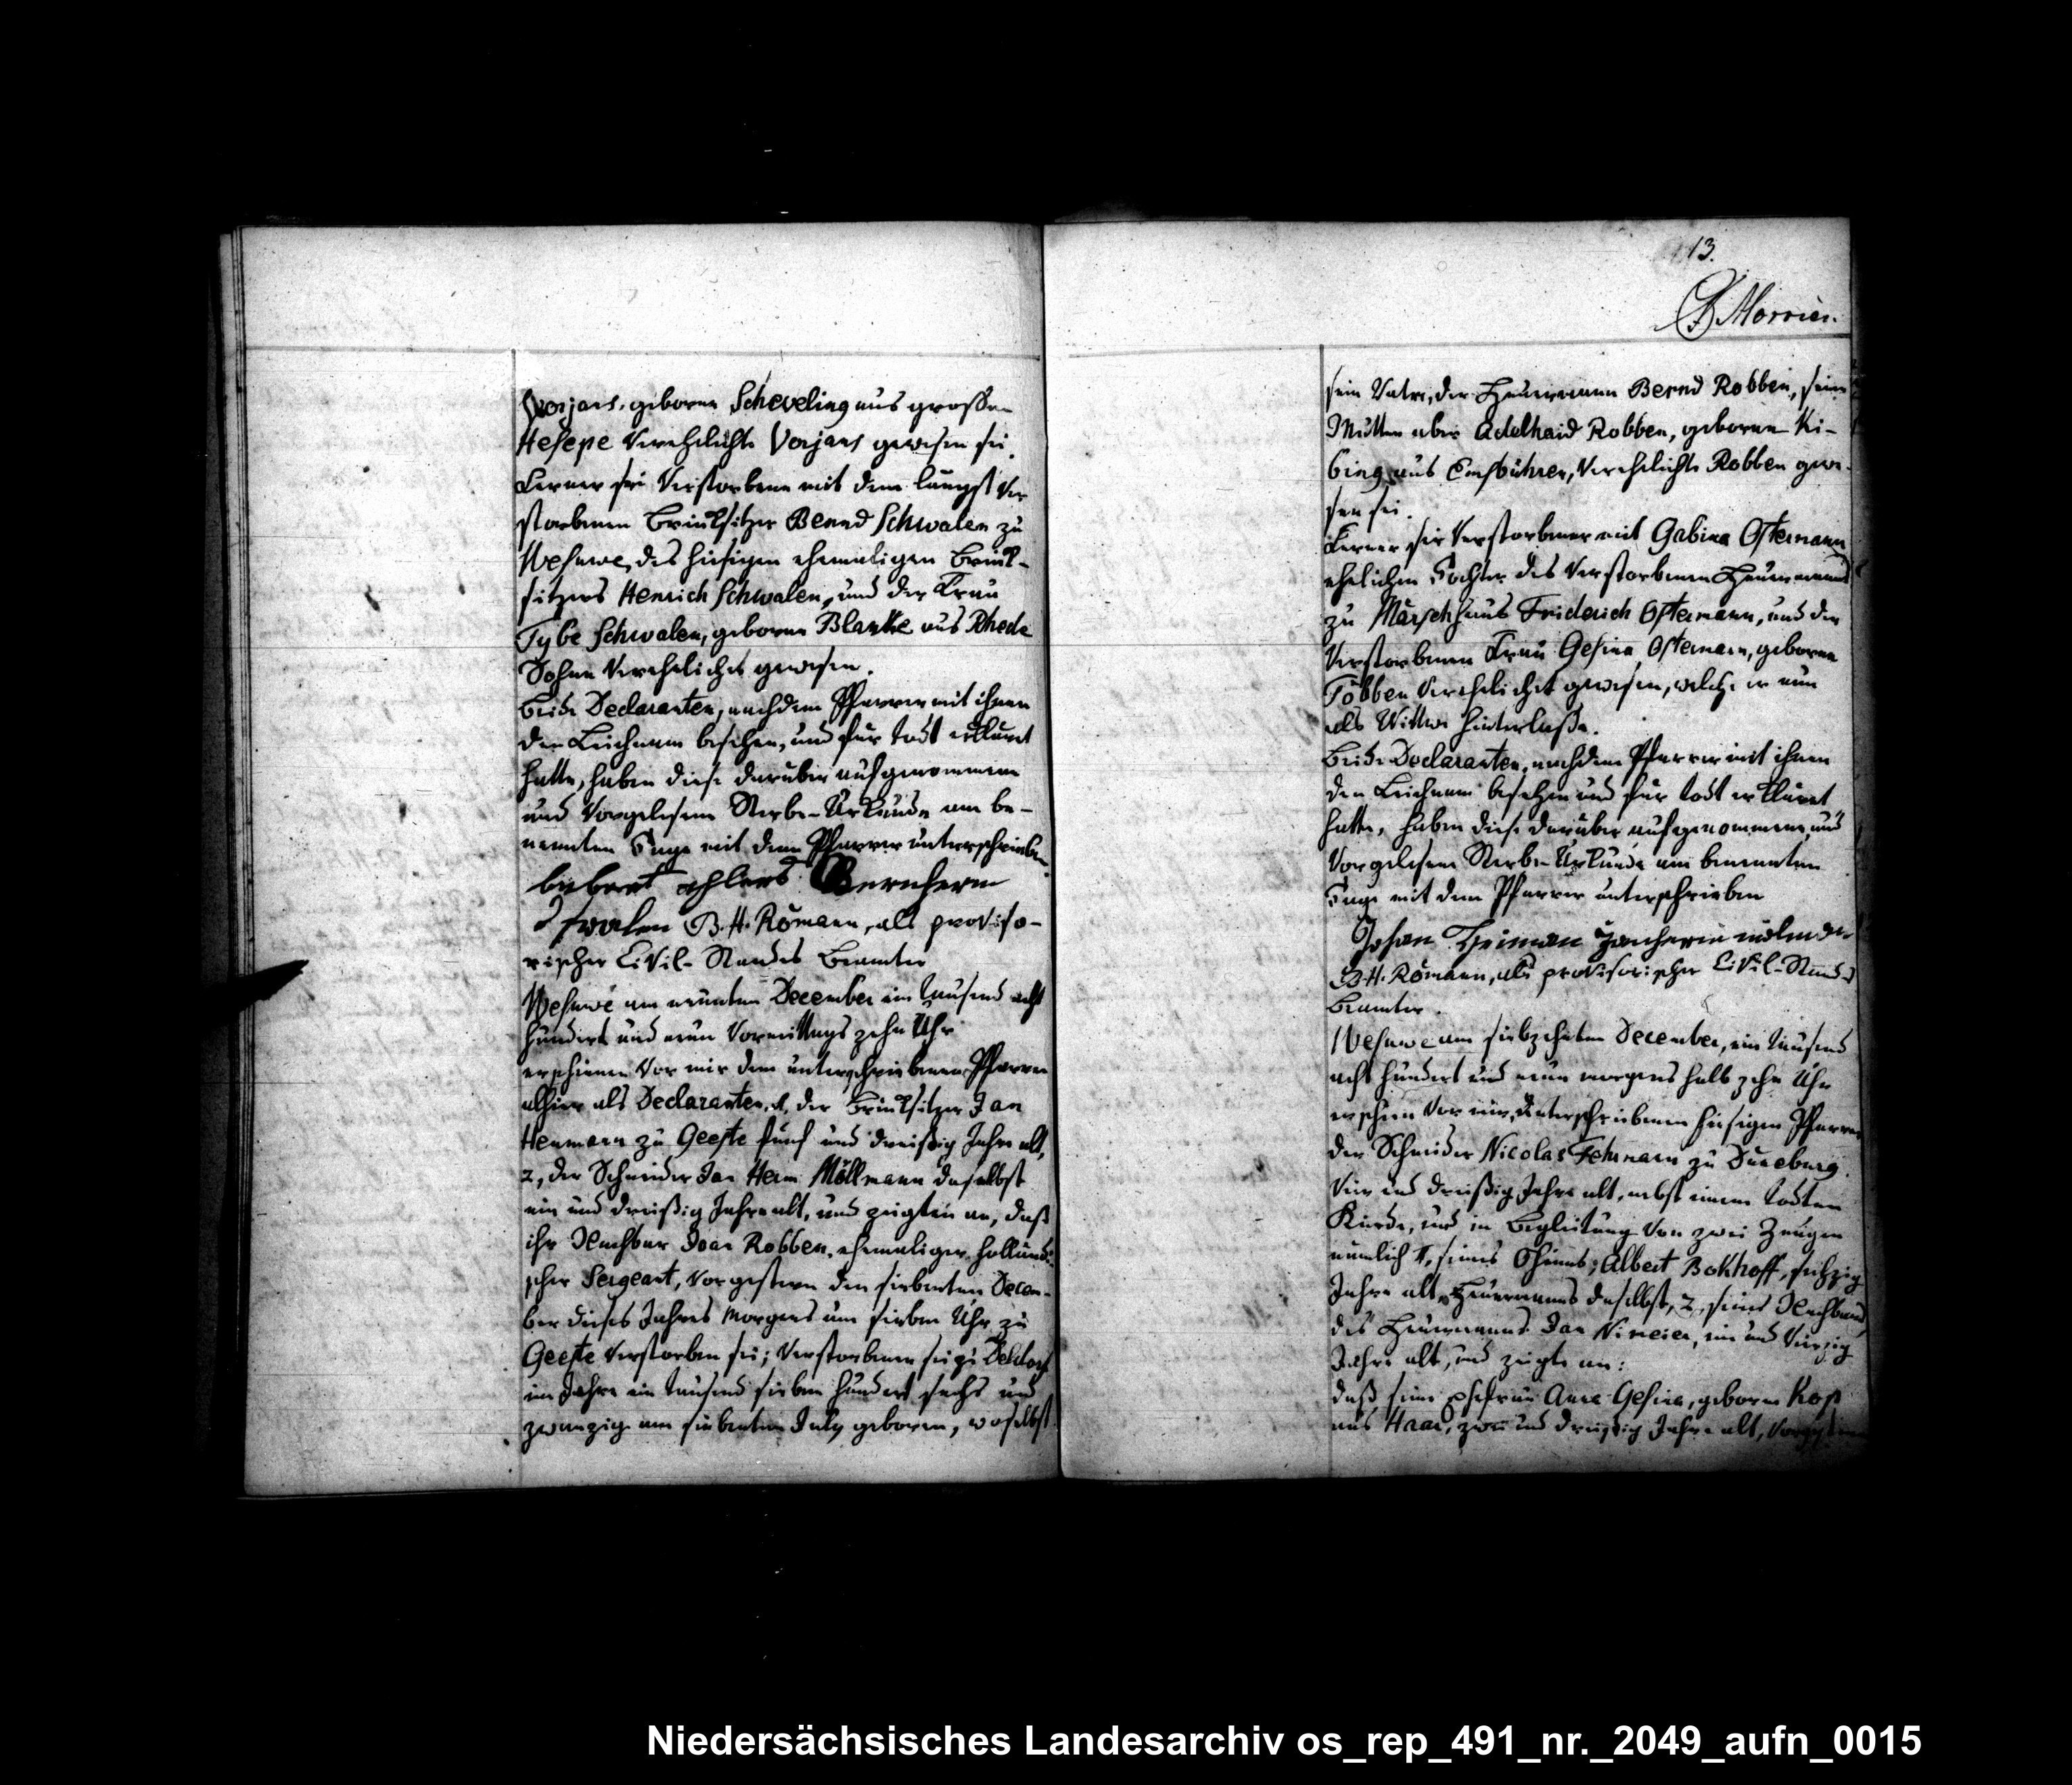 Vorjans, geborne Scheveling aus großen
Hesepe Verehelichte Vorjans gewesen sei.
Ferner sei Verstorbene mit dem längst Ver
storbenen Brinksitzer Bernd Schwalen zu
Wesuwe, des hiesigen ehemaligen Brink-
sitzers Henrich Schwalen, und der Frau
Tybe Schwalen, geborne Blanke aus Rhede
Sohne Verehelichet gewesen.
Beide Declaranten, nachdem Pfarrer mit ihnen
den Leichnam besehen, und für todt erkläret
hatte, haben diese darüber aufgenommene
und Vorgelesene Sterbe-Urkunde am be-
nannten Tage mit dem Pfarrer unterschrieben.
ahlers Bernherm
Schwalen B. H. Römann, als proviso-
rischer Civil-Standes Beamter
Wesuwe am neunten December ein tausend acht
hundert und neun Vormittags zehn Uhr
erschienen Vor mir dem unterschriebenen Pfarrer
alhier als Declaranten, 1, der Brinksitzer Jan
Henmann zu Geeste fünf und dreißig Jahre alt,
2, der Schneider Jan Herm Möllmann daselbst
ein und dreißig Jahre alt, und zeigten an, daß
ihr Nachbar Joan Robben, ehemaliger holländi-
scher Sergeant, Vorgestern den siebenten Decem-
ber dieses Jahres Morgens um sieben Uhr zu
Geeste Verstorben sei; Verstorbener sei zu
im Jahre ein tausend sieben hundert sechs und
zwanzig am siebenten July geboren, woselbst
13.
Morrien.
sein Vater, der Heuermann Bernd Robben, seine
Mutter aber Adelhaid Robben, geborne Ki-
bing aus Emsbühren, Verehelichte Robben gewe-
sen sei.
Ferner sei Verstorbener mit Gabina Ostermann
ehelichen Tochter des Verstorbenen Heuermanns
zu Märschhaus Friderich Ostermann, und der
Verstorbenen Frau Gesina Ostermann, geborne
Többen Verehelichet gewesen, welche er nun
als Wittwe hinterlaße.
Beide Declaranten, nachdem Pfarrer mit ihnen
den Leichnam besehen und für todt erkläret
hatte, haben diese darüber aufgenommene, und
Vorgelesene Sterbe-Urkunde am benannten
Tage mit dem Pfarrer unterschrieben
Johan Heiman Janherm
B. H. Römann, als provisorischer Civil-Stands
Beamter.
Wesuwe am siebzehnten December, ein tausend
acht hundert und neun morgens halb zehn Uhr
erschien Vor mir, Unterschriebenen hiesigen Pfarrer
der Schneider Nicolas Fehrmann zu Düneburg
Vier und dreißig Jahre alt, nebst einem todten
Kinde, und in Begleitung Von zwei Zeugen
nämlich 1, seines Oheims; Albert Bokhoff, sechzig
Jahre alt, Heuermanns daselbst, 2, seines Nachbars,
des Heuermanns Jan Nimeier, ein und Vierzig
Jahre alt, und zeigte an:
daß seine Ehefrau Anna Gesina, geborne Kop
aus Haar, zwei und dreißig Jahre alt, Vorgestern
Niedersächsisches Landesarchiv os_rep_491_nr._2049_aufn_0015